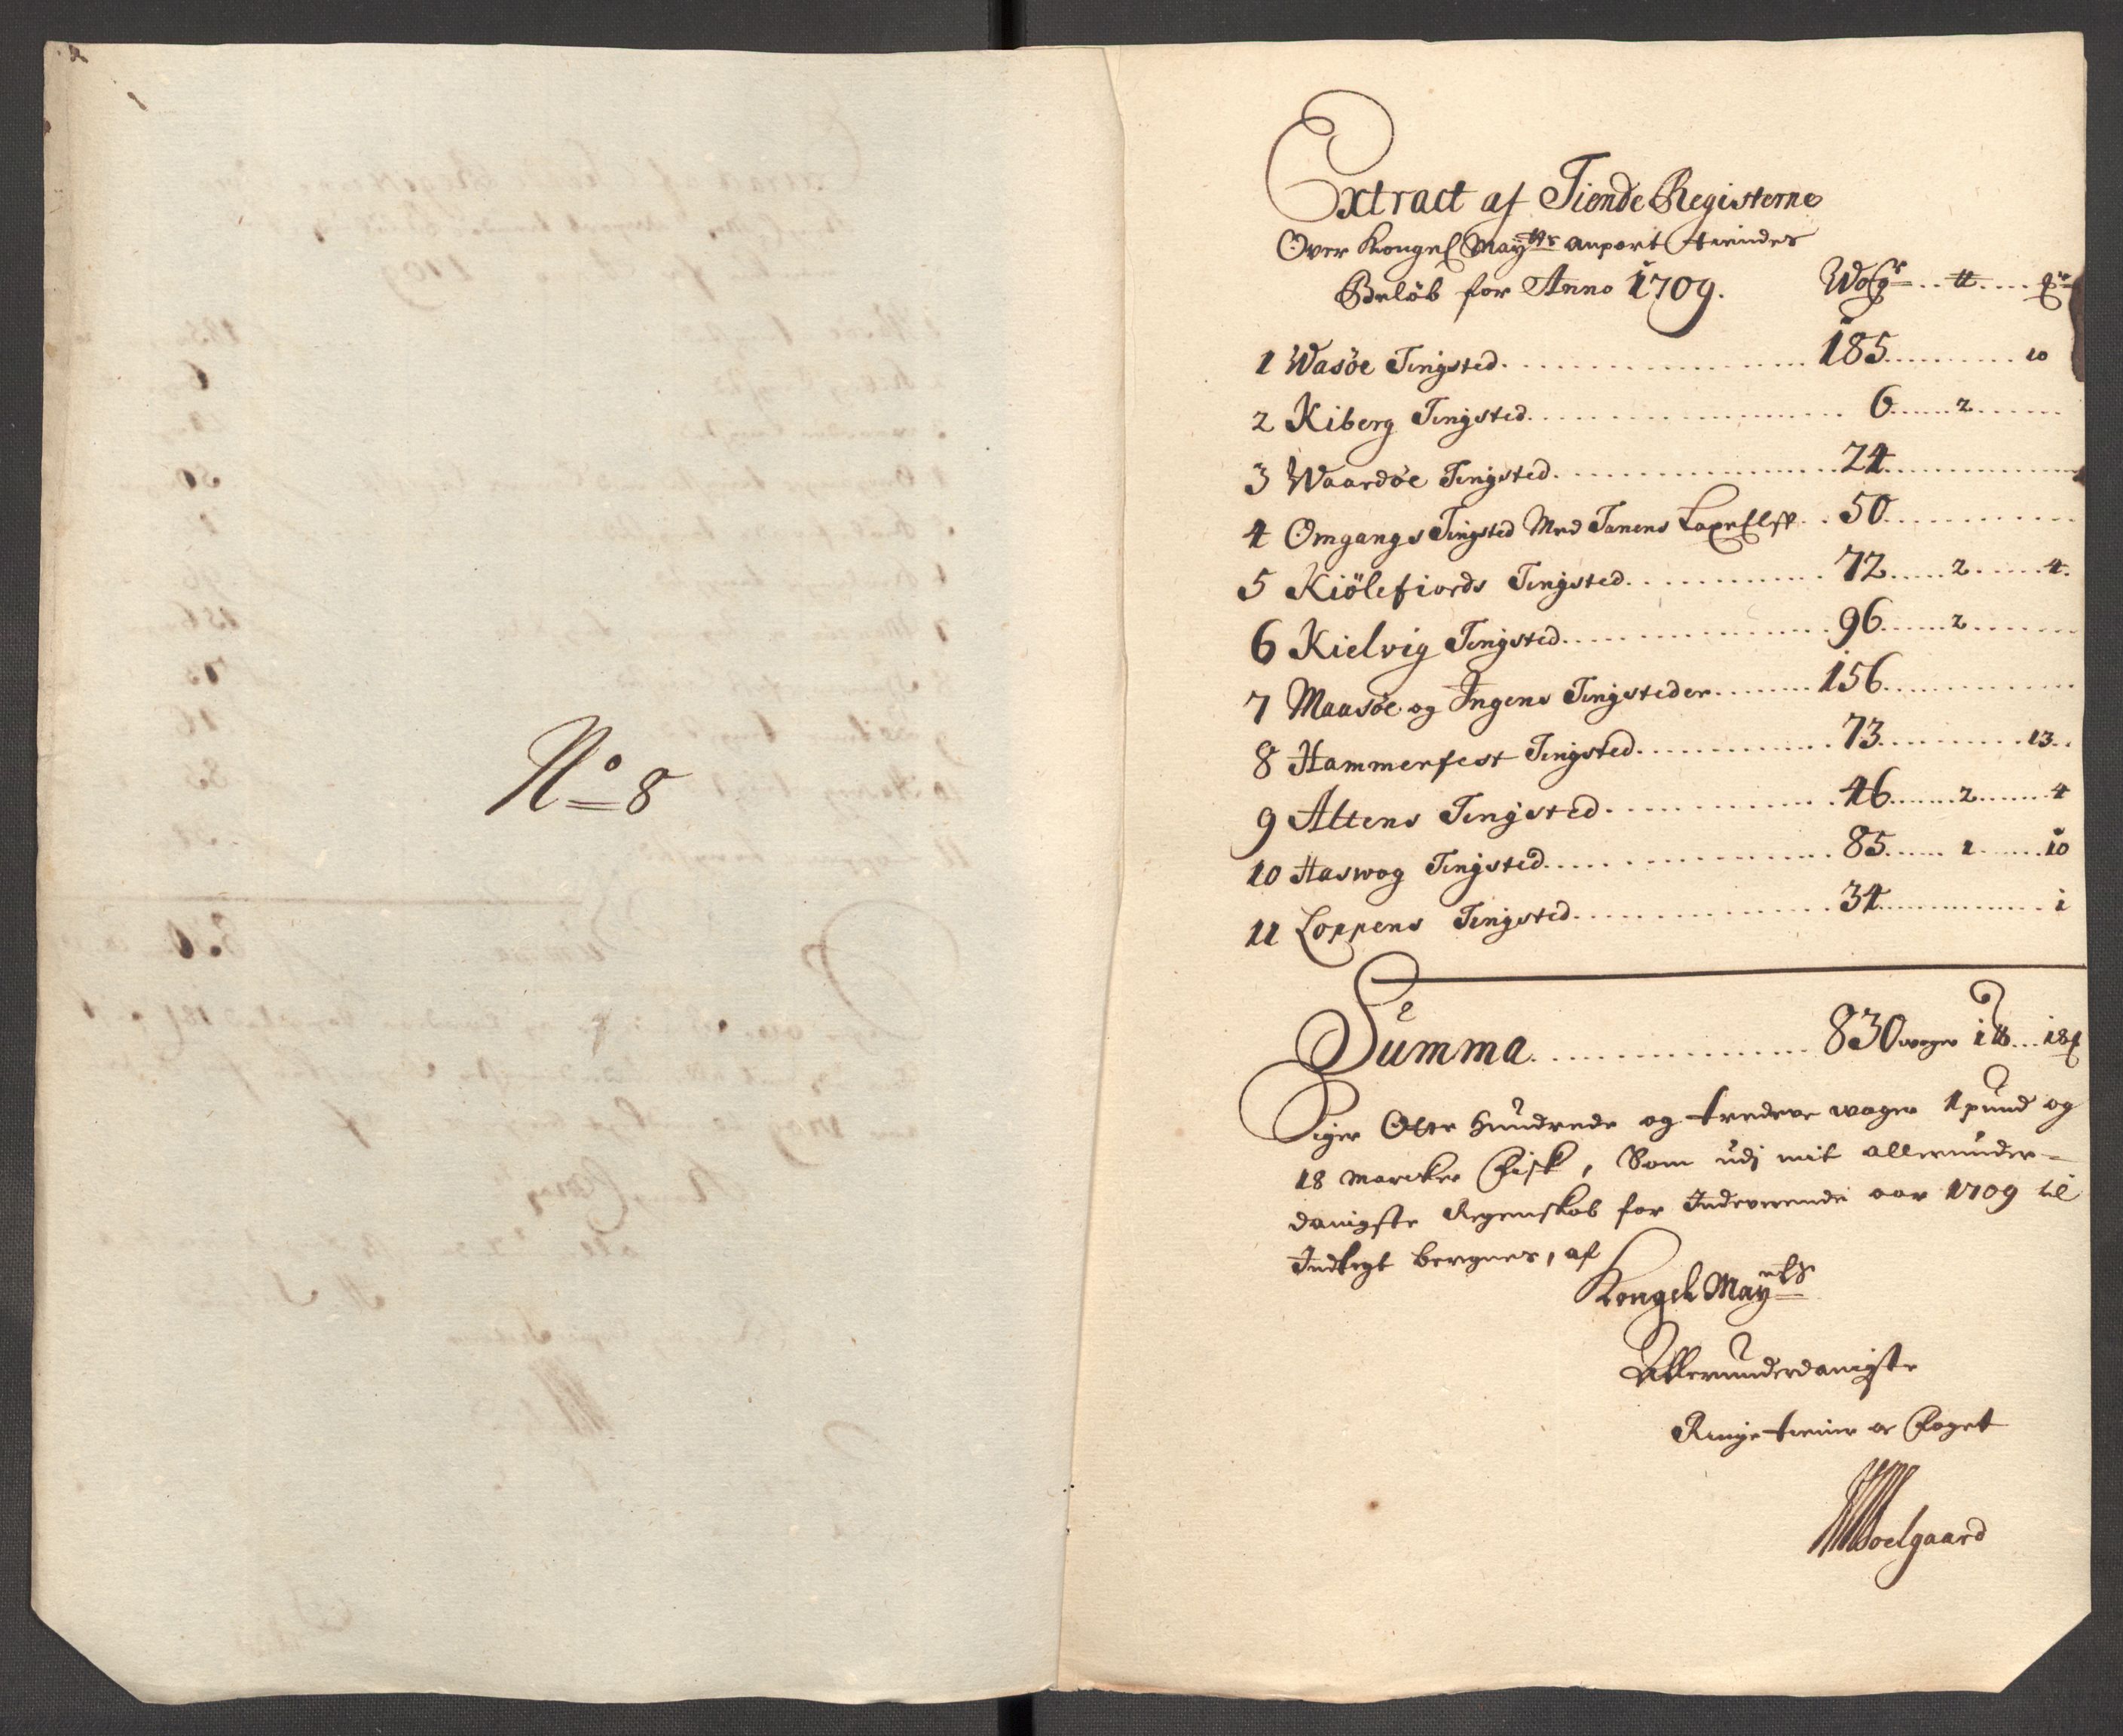 No 8
Extract af Tiende Registerne
Over Kongel Mayts anpart tiendes
Beløb for Anno 1709. Woger .. ℔ .... 
1 Wasöe Tingsted ........ 185 ........ 10
2 Kiberg Tingsted ........ 6 ..... 2 .....
3 Waardöe Tingsted ........ 24 ........
4 Omgangs Tingsted Med Tanens .. 50 ........
5 Kiölefiords Tingsted ........ 72 ..... 2 ..... 4.
6 Kielvig Tingsted ........ 96 ..... 2 .....
7 Maasöe og Ingens Tingsteder ........ 156 ........
8 Hammerfest Tingsted ........ 73 ........ 13..
9 Altens Tingsted ........ 46 ..... 2 ..... 4
10 Haswog Tingsted ........ 85 ..... 1 ..... 10
11 Loppens Tingsted ........ 34 ........ 1
Summa ........ 830 woger 1 ℔ ... 18
Siger Otte Hundrede og tredeve woger 1 pund og
18 Marcker Fisk, Som udj mit allerunder=
danigste Regenskab for Indeverende aar 1709 til
Indtegt beregnes, af
Kongel Mayets
Allerunderdanigste
Ringe tiener og Foget
Soelgaard